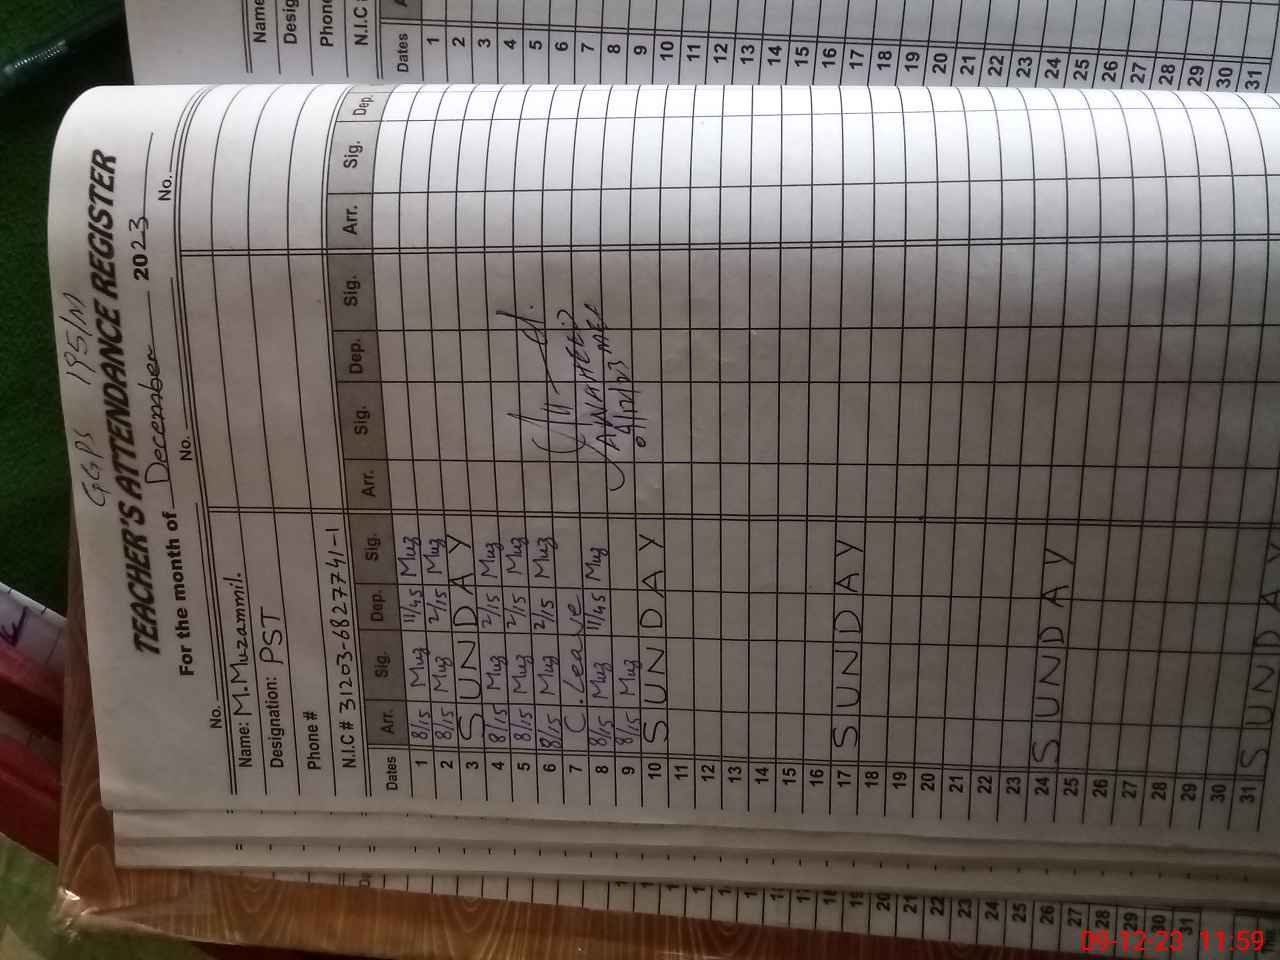 GGPS 195/N
TEACHER'S ATTENDANCE REGISTER
For the month of December 2023
No. No. No.
Name: M.Muzammil.
Designation: PST
Phone #
N.I.C # 31203-6827741-1
Dates Arr. Sig. Dep. Sig. Arr. Sig. Dep. Sig. Arr. Sig. Dep.
1 8/15 Muz 11/45 Muz
2 8/15 Muz 2/15 Muz
3 SUNDAY
4 8/15 Muz 2/15 Muz
5 8/15 Muz 2/15 Muz
6 8/15 Muz 2/15 Muz
7 C.Leave
8 8/15 Muz 11/45 Muz
9 8/15 Muz
10 SUNDAY
11
12
13
14
15
16
17 SUNDAY
18
19
20
21
22
23
24 SUNDAY
25
26
27
28
29
30
31 SUNDAY
Name
Desig
Phone
N.I.C
Dates A
1
2
3
4
5
6
7
8
9
10
11
12
13
14
15
16
17
18
19
20
21
22
23
24
25
26
27
28
29
30
31
20
21
22
23
24
25
26
27
28
29
30
31
09-12-23 11:59